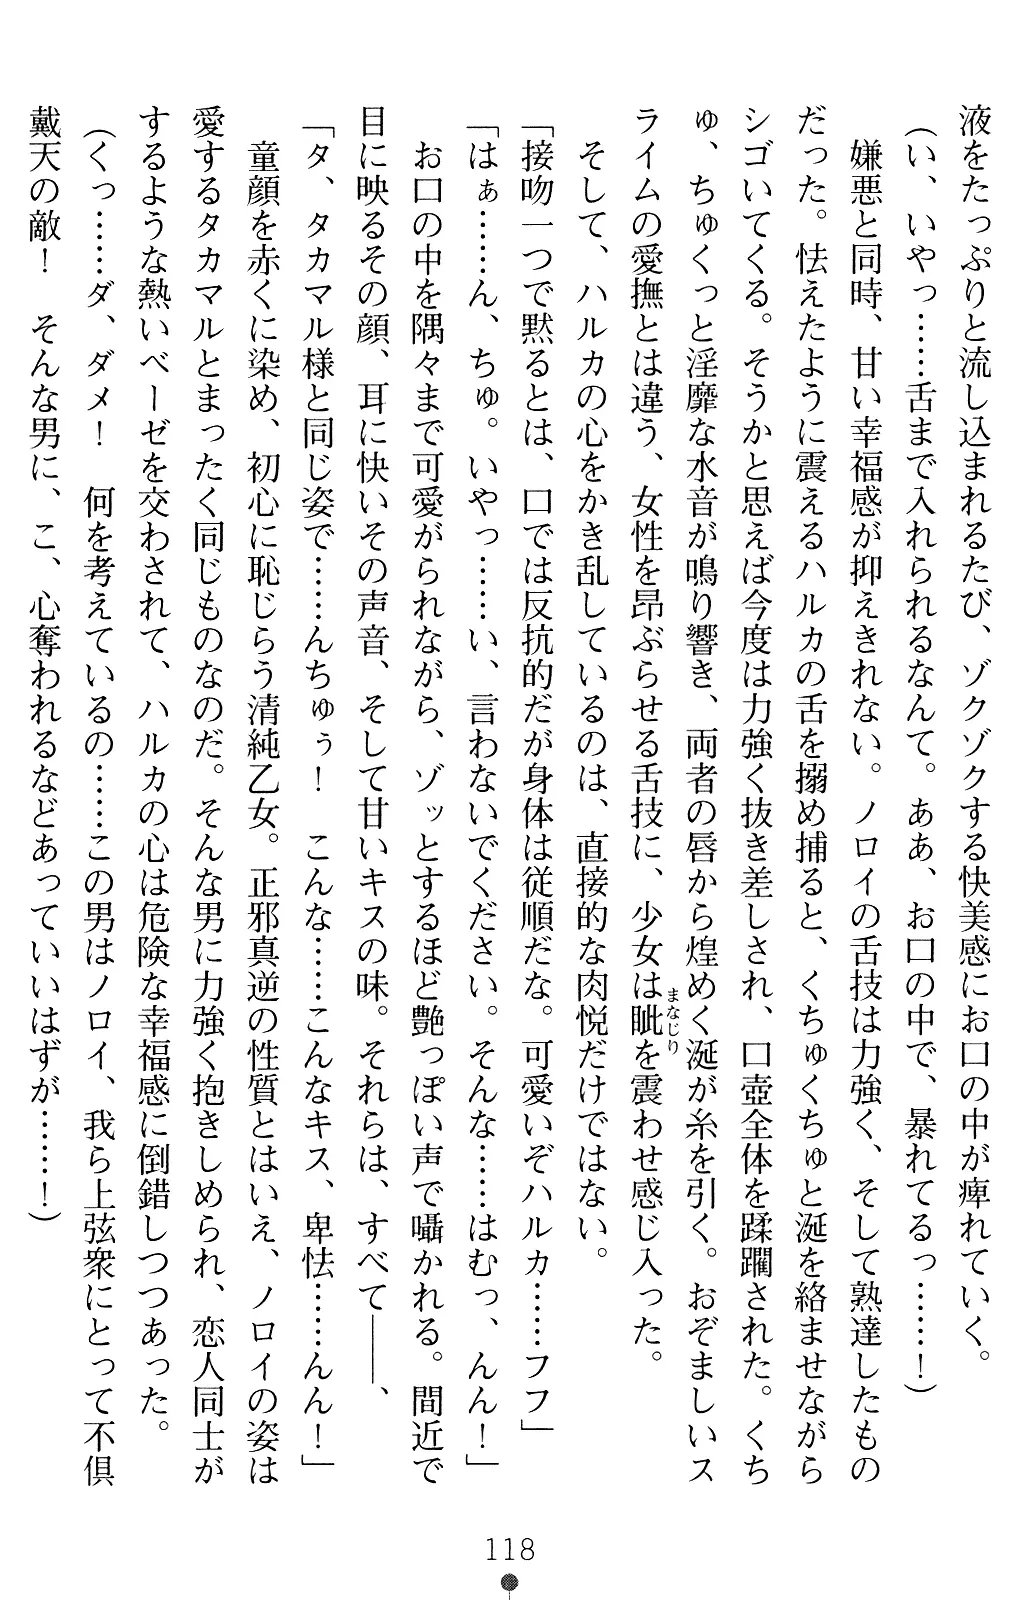 液をたっぷりと流し込まれるたび、ゾクゾクする快美感にお口の中が痺れていく。
（い、いやっ……舌まで入れられるなんて。ああ、お口の中で、暴れてるっ……！）
嫌悪と同時、甘い幸福感が抑えきれない。ノロイの舌技は力強く、そして熟達したもの
だった。怯えたように震えるハルカの舌を搦め捕ると、くちゅくちゅと涎を絡ませながら
シゴいてくる。そうかと思えば今度は力強く抜き差しされ、口壺全体を蹂躙された。くち
ゅ、ちゅくっと淫靡な水音が鳴り響き、両者の唇から煌めく涎が糸を引く。おぞましいス
ライムの愛撫とは違う、女性を昂ぶらせる舌技に、少女は眦まなじりを震わせ感じ入った。
そして、ハルカの心をかき乱しているのは、直接的な肉悦だけではない。
「接吻一つで黙るとは、口では反抗的だが身体は従順だな。可愛いぞハルカ……フフ」
「はぁ……ん、ちゅ。いやっ……い、言わないでください。そんな……はむっ、んん！」
お口の中を隅々まで可愛がられながら、ゾッとするほど艶っぽい声で囁かれる。間近で
目に映るその顔、耳に快いその声音、そして甘いキスの味。それらは、すべて――、
「タ、タカマル様と同じ姿で……んちゅぅ！　こんな……こんなキス、卑怯……んん！」
童顔を赤くに染め、初心に恥じらう清純乙女。正邪真逆の性質とはいえ、ノロイの姿は
愛するタカマルとまったく同じものなのだ。そんな男に力強く抱きしめられ、恋人同士が
するような熱いベーゼを交わされて、ハルカの心は危険な幸福感に倒錯しつつあった。
（くっ……ダ、ダメ！　何を考えているの……この男はノロイ、我ら上弦衆にとって不倶
戴天の敵！　そんな男に、こ、心奪われるなどあっていいはずが……！）
118